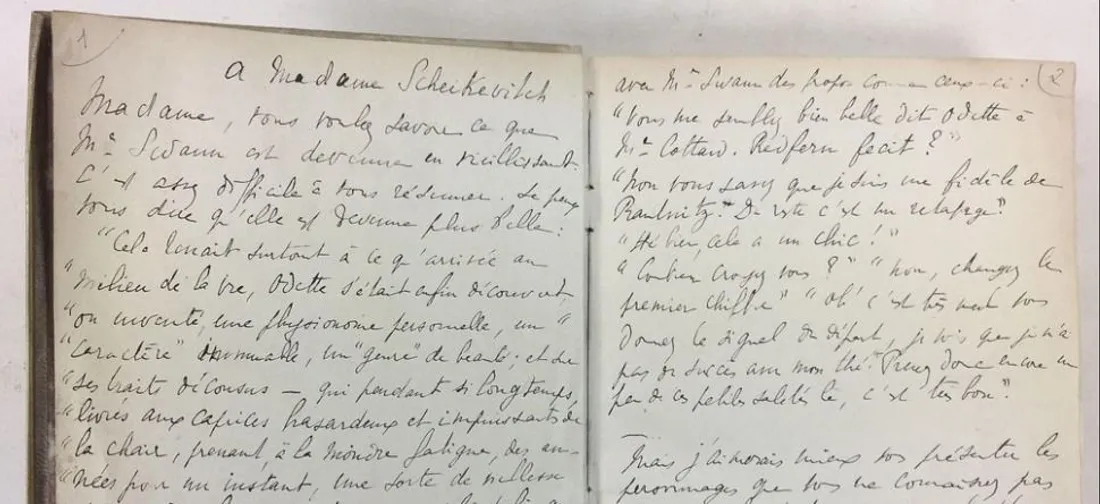 1
A Madame Scheikevitch
Madame, vous voulez savoir ce que
Me Swann est devenue en vieillissant.
C'est assez difficile à vous résumer. Je peux
vous dire qu'elle est devenue plus belle :
"Cela tenait surtout à ce qu'arrivée au
"milieu de la vie, Odette s'était enfin découvert,
"ou inventé, une physionomie personnelle, un "
"caractère" immuable, un "genre" de beauté ; et sur
"ses traits décousus — qui pendant si longtemps,
"livrés aux caprices hasardeux et impuissants de
"la chair, prenant à la moindre fatigue, des an-
"nées pour un instant, une sorte de vieillesse
2
avec Me Swann des propos comme ceux-ci :
"Vous me semblez bien belle dit Odette à
Me Cottard. Redfern fecit ?"
"Non vous savez que je suis une fidèle de
Raudnitz. Du reste c'est un retapage."
"Hé bien, cela a un chic !"
"Combien croyez vous ?" "Non, changez le
premier chiffre" "Oh ! c'est très mal vous
donnez le signal du départ, je vois que je n'ai
pas de succès avec mon thé." Prenez donc encore un
peu de ces petites saletés là, c'est très bon."
Mais j'aimerais mieux vous présenter les
personnages que vous ne connaissez pas